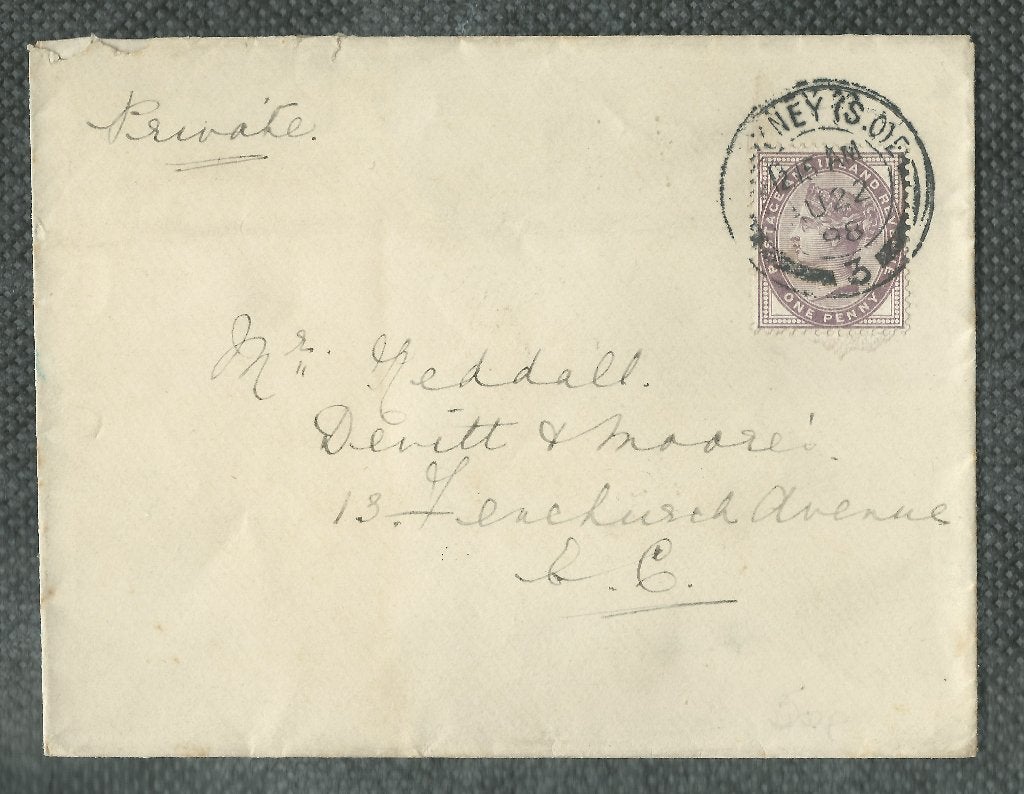 Private.
NEY (S.O)
AM
U 22
98
3
POSTAGE AND REVENUE
ONE PENNY
Mr. Neddall.
Devitt & Moore's.
13. Fenchurch Avenue
E. C.